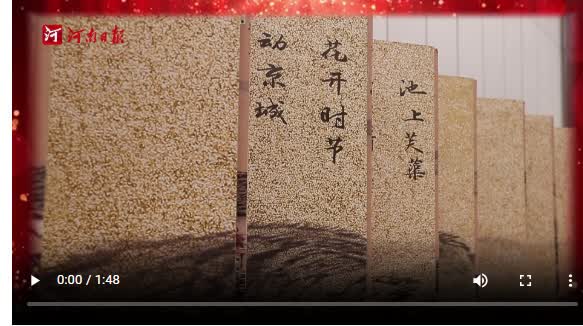 河南日报
花开时节
动京城
池上芙蕖
0:00 / 1:48